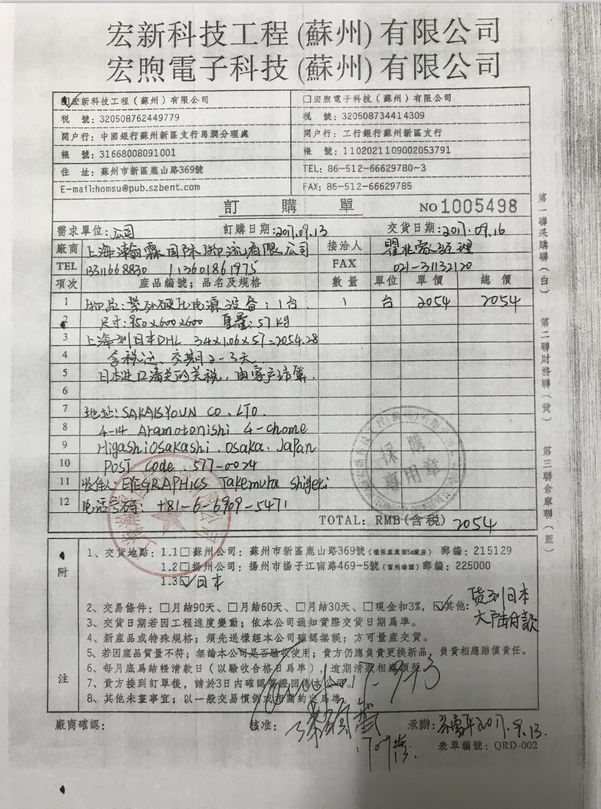 宏新科技工程(蘇州)有限公司
宏煦電子科技(蘇州)有限公司
宏新科技工程（蘇州）有限公司
税 號：320508762449779
開户行：中國銀行蘇州新區支行馬澗分理處
帳 號：31668008091001
住 址：蘇州市新區鹿山路369號
E-mail:homsu@pub.szbent.com
□宏煦電子科技（蘇州）有限公司
税 號：320508734414309
開户行：工行銀行蘇州新區支行
帳 號：1102021109002053791
TEL：86-512-66629780~3
FAX：86-512-66629785
訂 購 單
NO 1005498
需求單位：公司 訂購日期：2017.09.13 交貨日期：2017.09.16
廠商 上海瀚霖国际物流有限公司 接洽人 經理
TEL 13611601975 FAX 021-31132120
項次 産品編號；品名及規格 數量 單位 單價 總價
1 物品：紫外硬化电源设备：1台 1 台 2054 2054
2 尺寸：950×600×600 重量：57kg
3 上海到日本DHL 34×1.06×57=2054.28
4 含税运，交期2-3天
5 日本进口清关的关税，由客户结算.
6
7 地址：SAKAISYOUN CO. LTD.
8 4-14 Aramotonishi 4-chome
9 HigashiOsakashi. Osaka. Japan
10 Post code. 577-0024
11 收件人：EYEGRAPHICS Takemura Shigeki
12 电话号码：+81-6-6909-5471
採購
專用章
TOTAL: RMB(含税) 2054
第一聯採購聯(白)
第二聯財務聯(黄)
第三聯倉庫聯(藍)
附
注
1、交貨地點：1.1□蘇州公司：蘇州市新區鹿山路369號 郵編：215129
1.2□揚州公司：揚州市揚子江南路469-5號 郵編：225000
1.3☑日本
2、交易條件：□月結90天、□月結60天、□月結30天、□現金扣3%，☑其他：货到日本大陆付款
3、交貨日期若因工程進度變動；依本公司通知實際交貨日期爲準。
4、新産品或特殊規格；須先送樣經本公司確認無誤；方可量産交貨。
5、若因産品質量不符；無論本公司是否驗收使用；貴方仍應負責更換新品，負責相應賠償責任。
6、每月底爲結帳清款日（以驗收合格日爲準）
7、貴方接到訂單後，請於3日内確認簽認回傳本公司。
8、其他未盡事宜；以一般交易慣例或相關約定爲準
廠商確認： 核准： 承辦： 2017.9.13.
表單編號：QRD-002